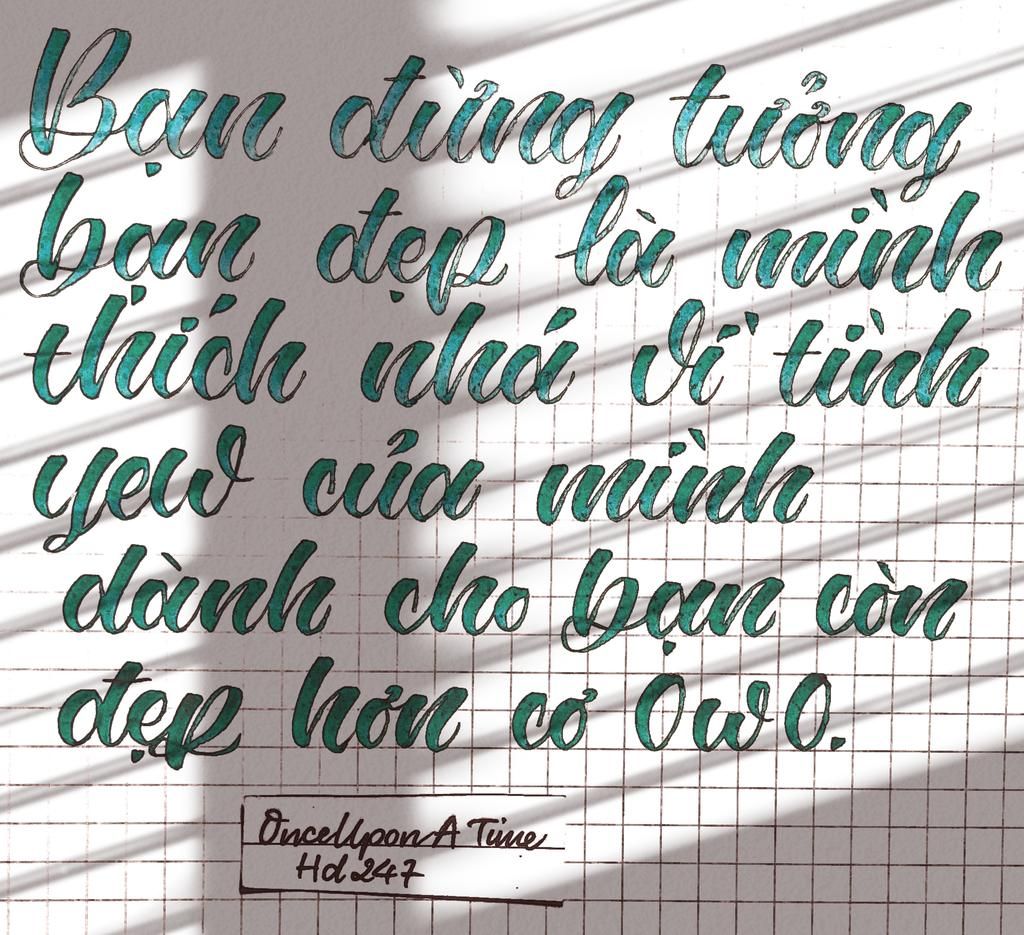 Bạn đừng tưởng
bạn đẹp là mình
thích nhá vì tình
yew của mình
dành cho bạn còn
đẹp hơn cơ OwO.
OnceUpon A Time
Hd 247